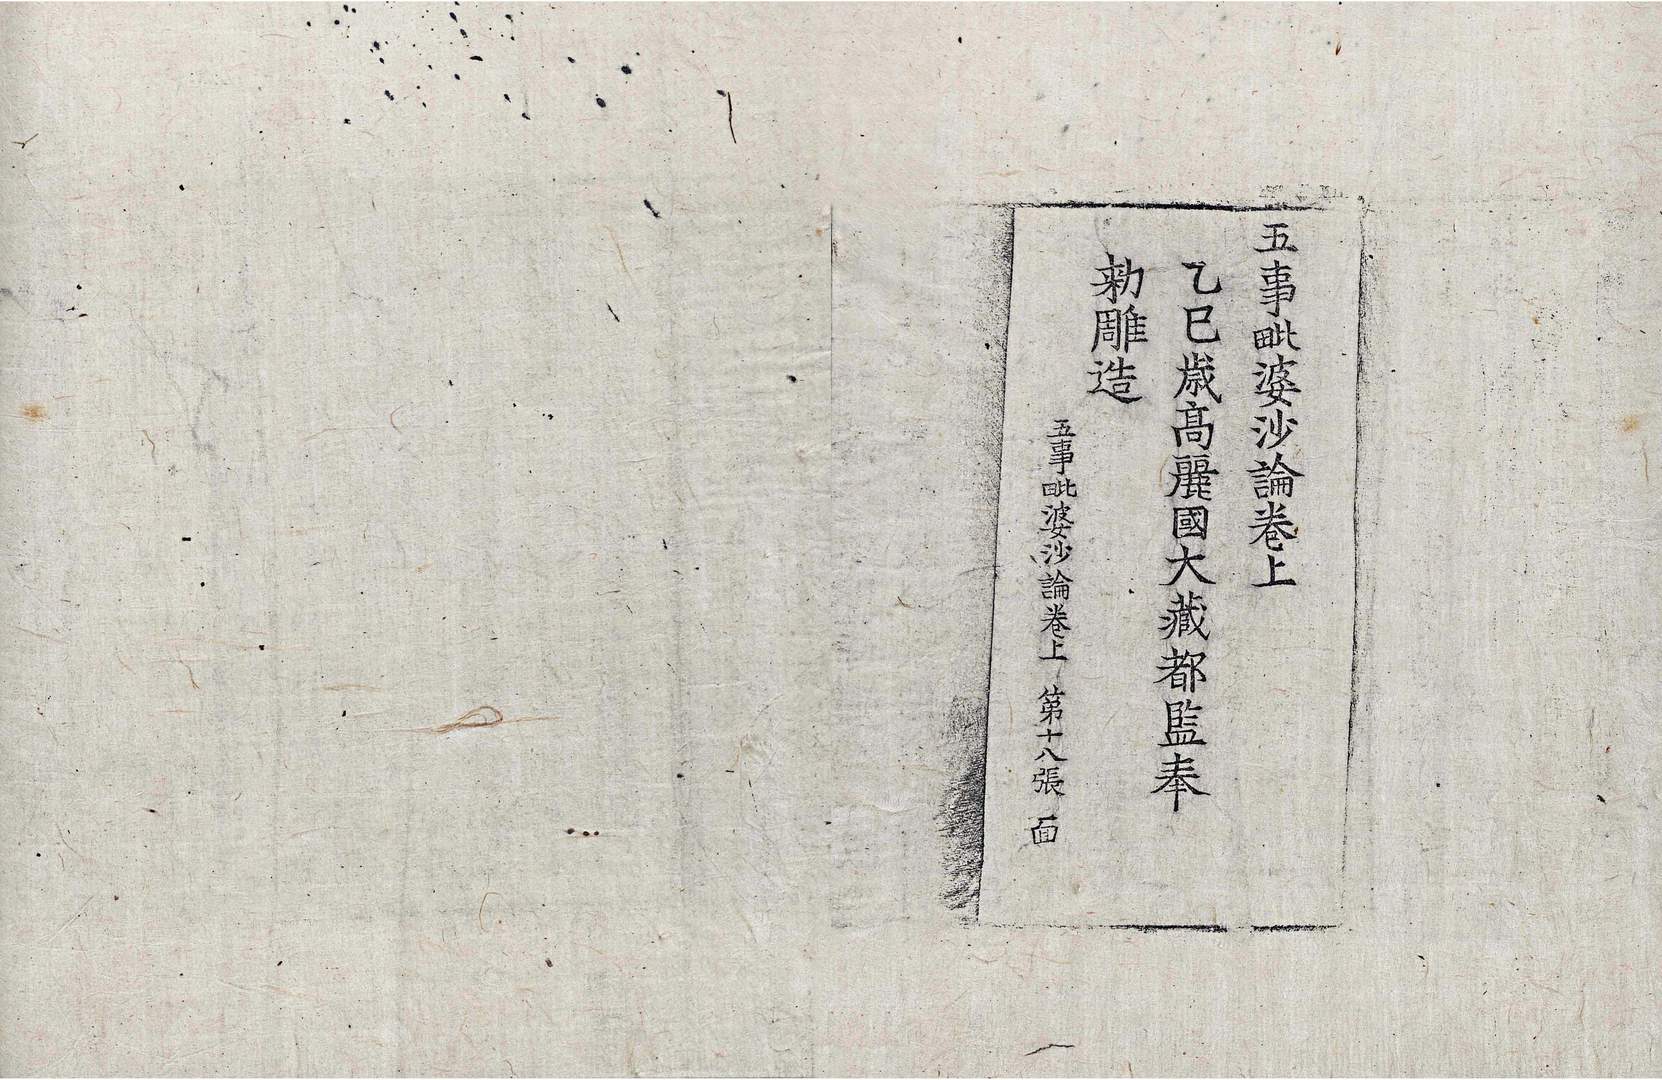 五事毗婆沙論卷上
乙巳歲高麗國大藏都監奉
勑雕造
五事毗婆沙論卷上 第十八張 面